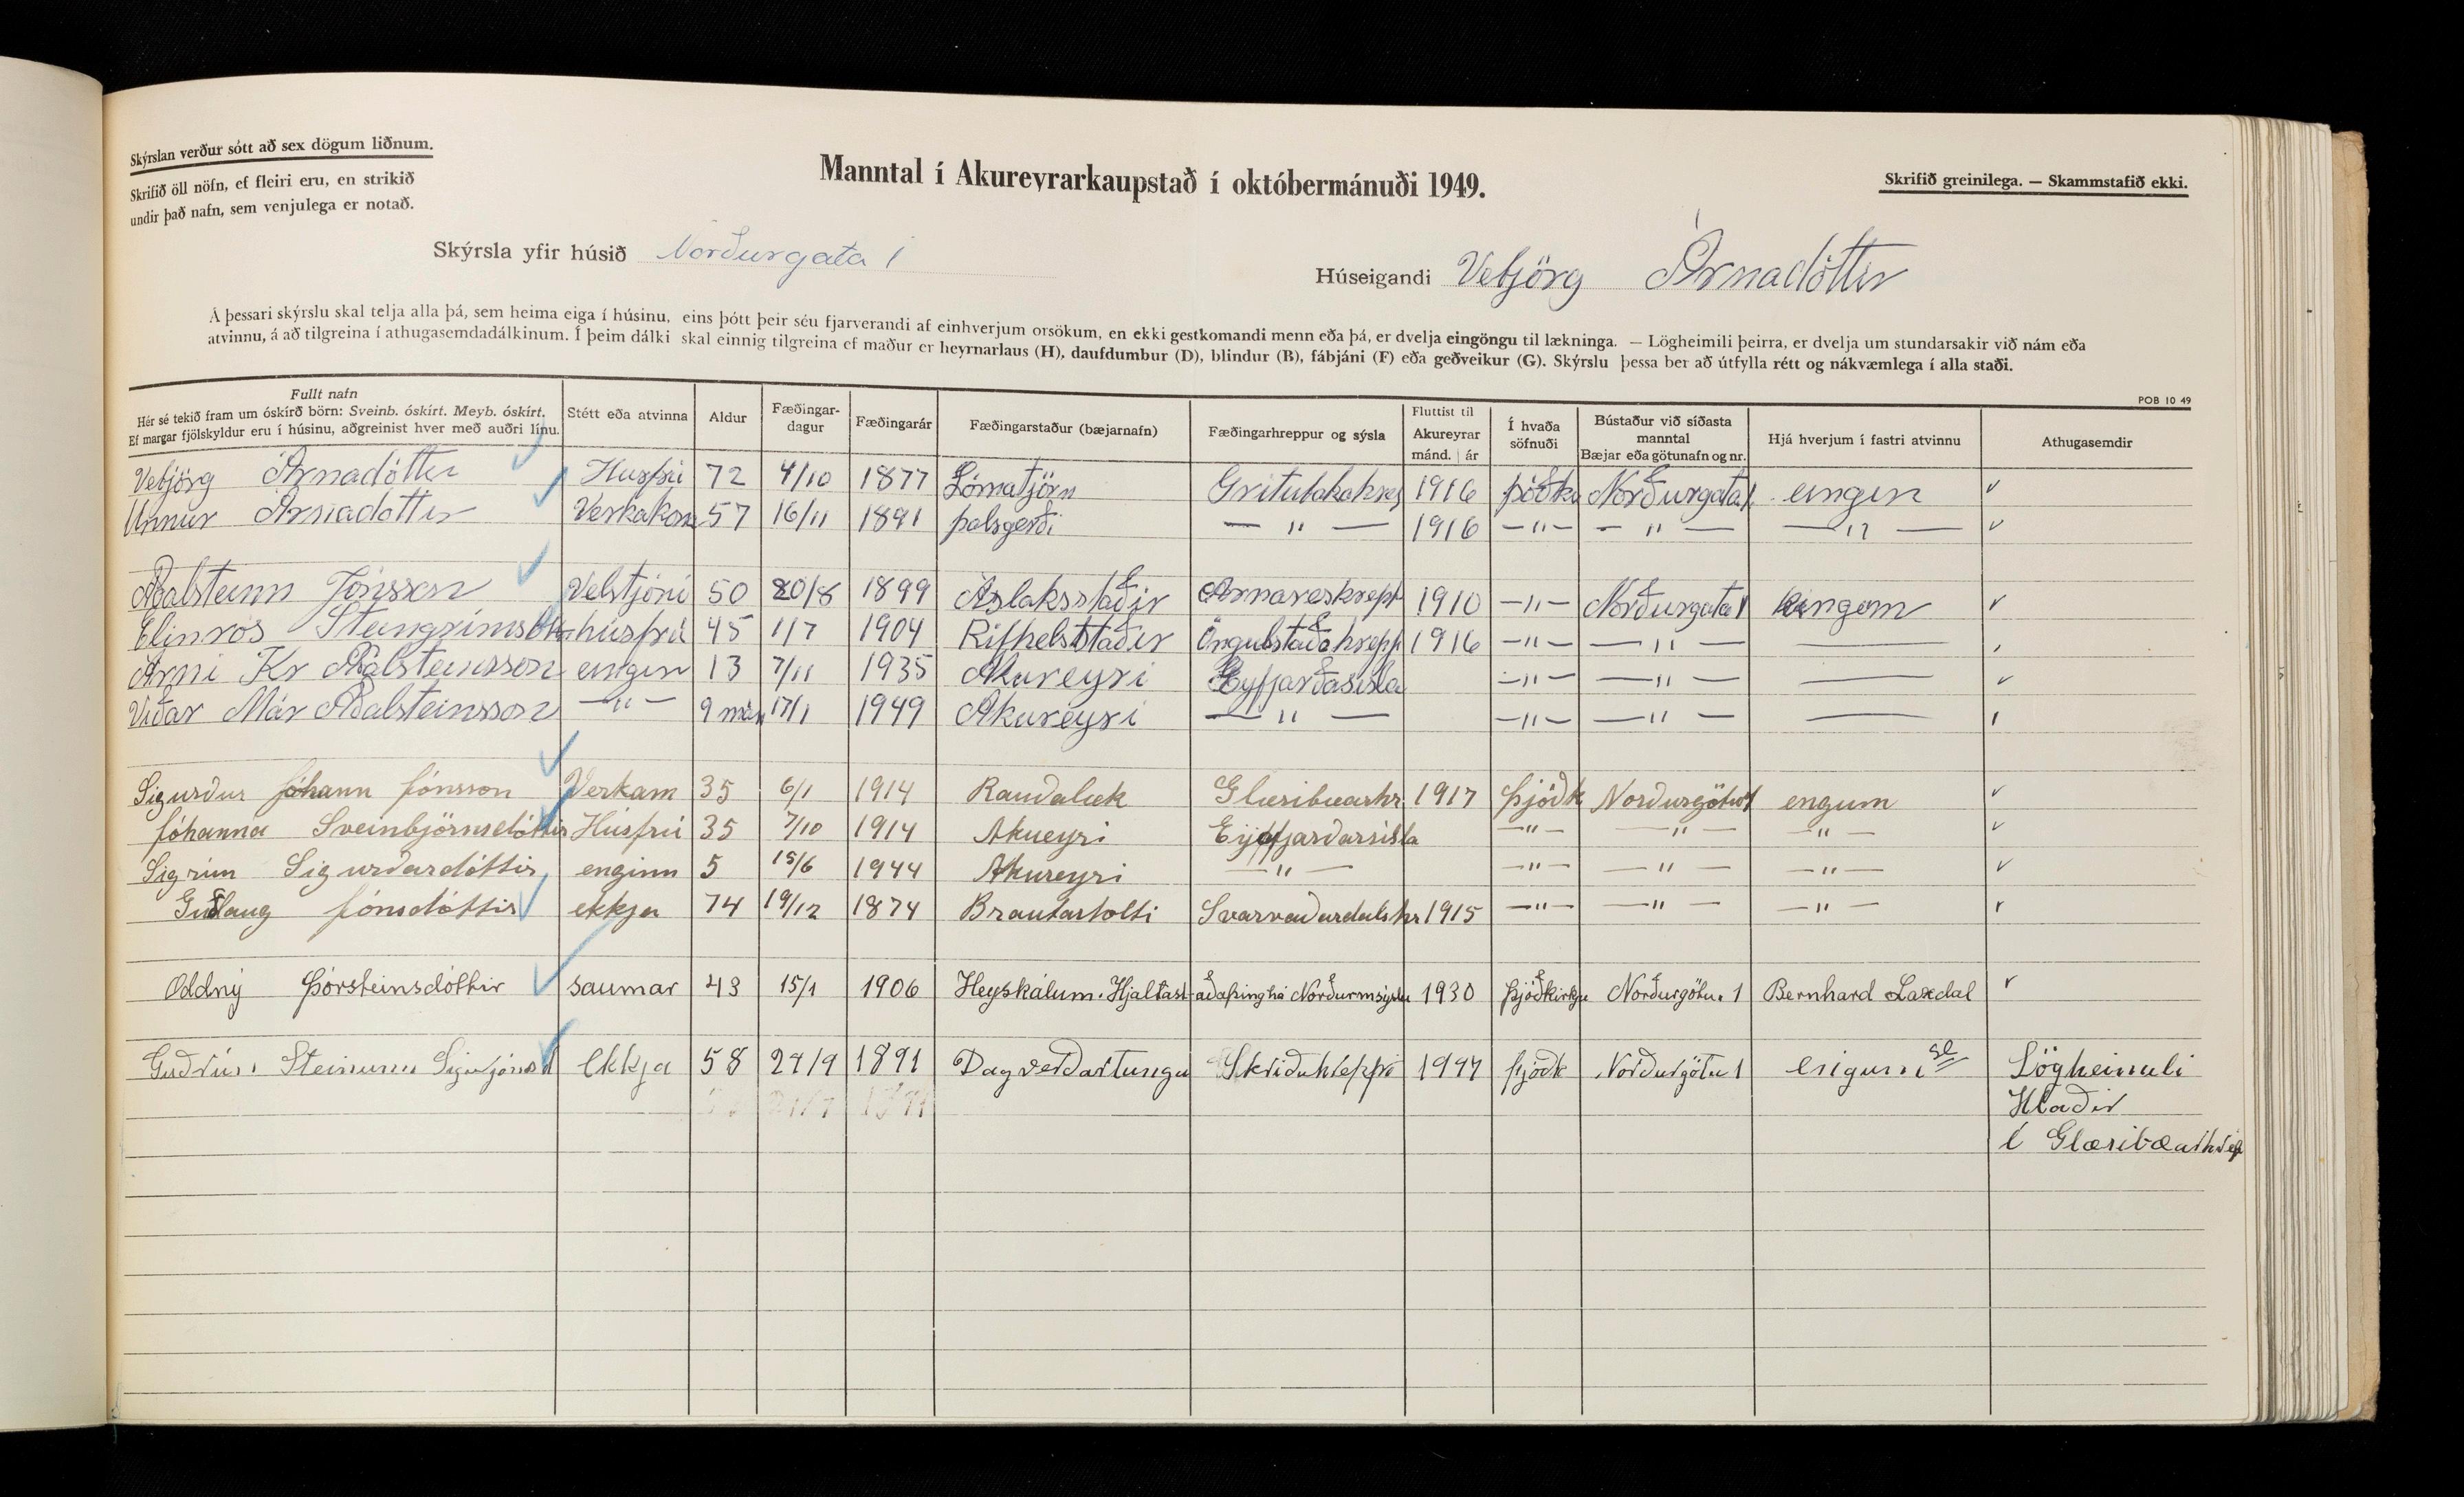 Skýrslan verður sótt að sex dögum liðnum.
Skrifið öll nöfn, ef fleiri eru, en strikið
undir það nafn, sem venjulega er notað.
Manntal í Akureyrarkaupstað í októbermánuði 1949.
Skrifið greinilega. — Skammstafið ekki.
Skýrsla yfir húsið Norðurgata 1
Húseigandi Vebjörg Árnadóttir
Á þessari skýrslu skal telja alla þá, sem heima eiga í húsinu, eins þótt þeir séu fjarverandi af einhverjum orsökum, en ekki gestkomandi menn eða þá, er dvelja eingöngu til lækninga. — Lögheimili þeirra, er dvelja um stundarsakir við nám eða
atvinnu, á að tilgreina í athugasemdadálkinum. Í þeim dálki skal einnig tilgreina ef maður er heyrnarlaus (H), daufdumbur (D), blindur (B), fábjáni (F) eða geðveikur (G). Skýrslu þessa ber að útfylla rétt og nákvæmlega í alla staði.
POB 10 49
Fullt nafn
Hér sé tekið fram um óskírð börn: Sveinb. óskírt. Meyb. óskírt.
Ef margar fjölskyldur eru í húsinu, aðgreinist hver með auðri línu.
Stétt eða atvinna
Aldur
Fæðingar-
dagur
Fæðingarár
Fæðingarstaður (bæjarnafn)
Fæðingarhreppur og sýsla
Fluttist til
Akureyrar
mánd. | ár
Í hvaða
söfnuði
Bústaður við síðasta
manntal
Bæjar eða götunafn og nr.
Hjá hverjum í fastri atvinnu
Athugasemdir
Vebjörg Árnadóttir Húsfrú 72 4/10 1877 Lómatjörn 1916 Norðurgata 1 eingin
Unnur Árnadóttir Verkakona 57 16/11 1891 þalsgerði — " — 1916 — " — — " — — " —
Aðalsteinn Jónsson Velstjóri 50 20/8 1899 Áslaksstaðir Arnareshrepp 1910 — " — Norðurgata 1 eingom
Elinrós húsfrú 45 1/7 1904 Öngulstaðahrepp 1916 — " — — " —
Árni Kr Aðalsteinsson eingin 13 7/11 1935 Akureyri Eyjfarðasisla — " — — " —
Viðar Már Aðalsteinsson — " — 9 mán 17/1 1949 Akureyri — " — — " — — " —
Sigurður Jóhann Jónsson Verkam 35 6/1 1914 Raudalæk Glæsibæarhr. 1917 Þjóðk Norðurgötu 1 engum
Jóhanna Sveinbjörnsdóttir Húsfrú 35 7/10 1914 Akueyri Eyjafjarðarsísla — " — — " — — " —
Sigrún Sigurðardóttir enginn 5 15/6 1944 Akureyri — " — — " — — " — — " —
Guðlaug Jónsdóttir ekkja 74 19/12 1874 Brautarholti Svarvaðardalshr 1915 — " — — " — — " —
Oddný Þórsteinsdóttir saumar 43 15/1 1906 Heyskálum. Hjaltastaðaþinghá Norðurmsýslu 1930 Þjóðkirkju Norðurgötu. 1 Bernhard Laxdal
Guðrún Steinunn Sigurjónsd ekkja 58 24/9 1891 Dagverðartungu Skriðuhreppi 1947 þjóðk Norðurgötu 1 engum Lögheimili
Hlaðir
í Glæsibæarhrep